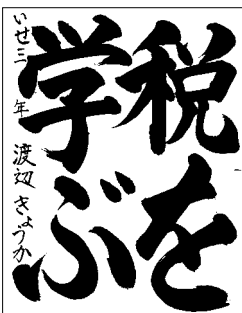 税を
学ぶ
いせ三年 渡辺きょうか